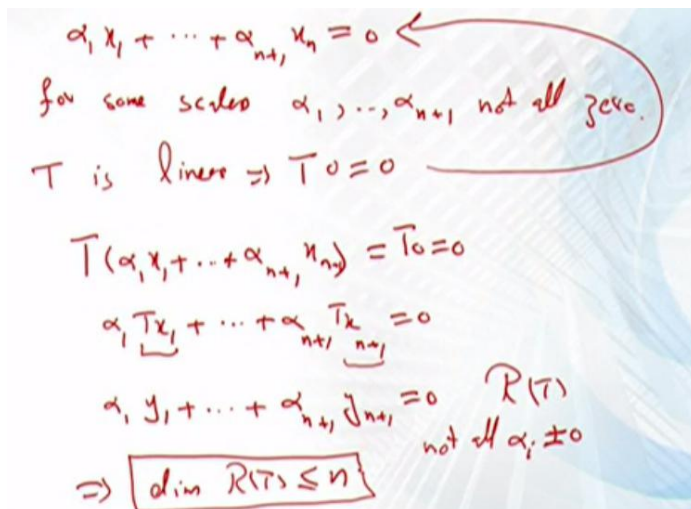 α₁x₁ + ⋯ + αₙ₊₁xₙ = 0
for some scalars α₁, .., αₙ₊₁ not all zero.
T is linear ⇒ T0 = 0
T(α₁x₁ + ⋯ + αₙ₊₁xₙ₊₁) = T0 = 0
α₁Tx₁ + ⋯ + αₙ₊₁Txₙ₊₁ = 0
α₁y₁ + ⋯ + αₙ₊₁yₙ₊₁ = 0 R(T)
not all αᵢ ± 0
⇒ dim R(T) ≤ n